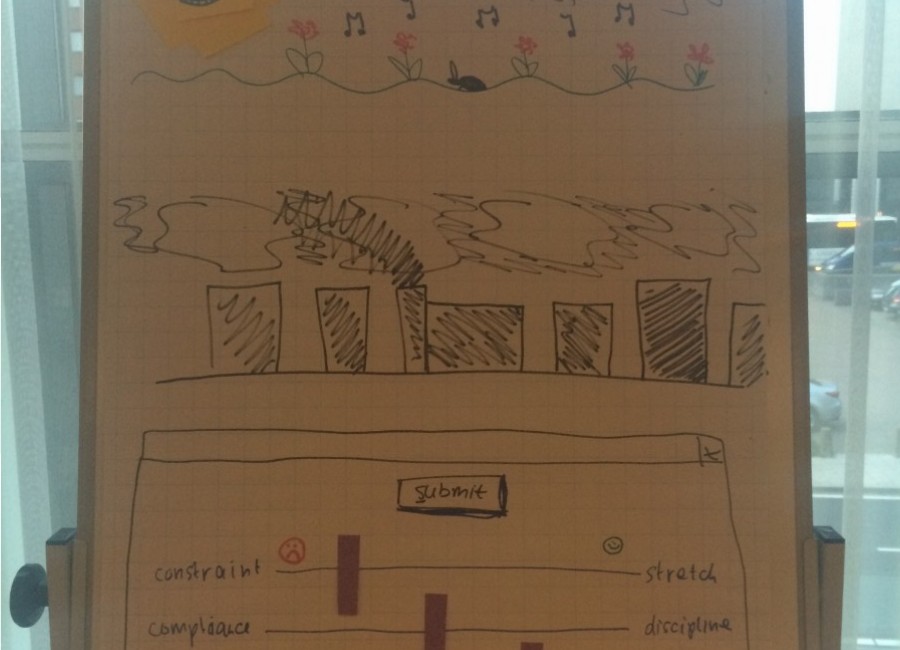 X
submit
constraint stretch
compliance discipline